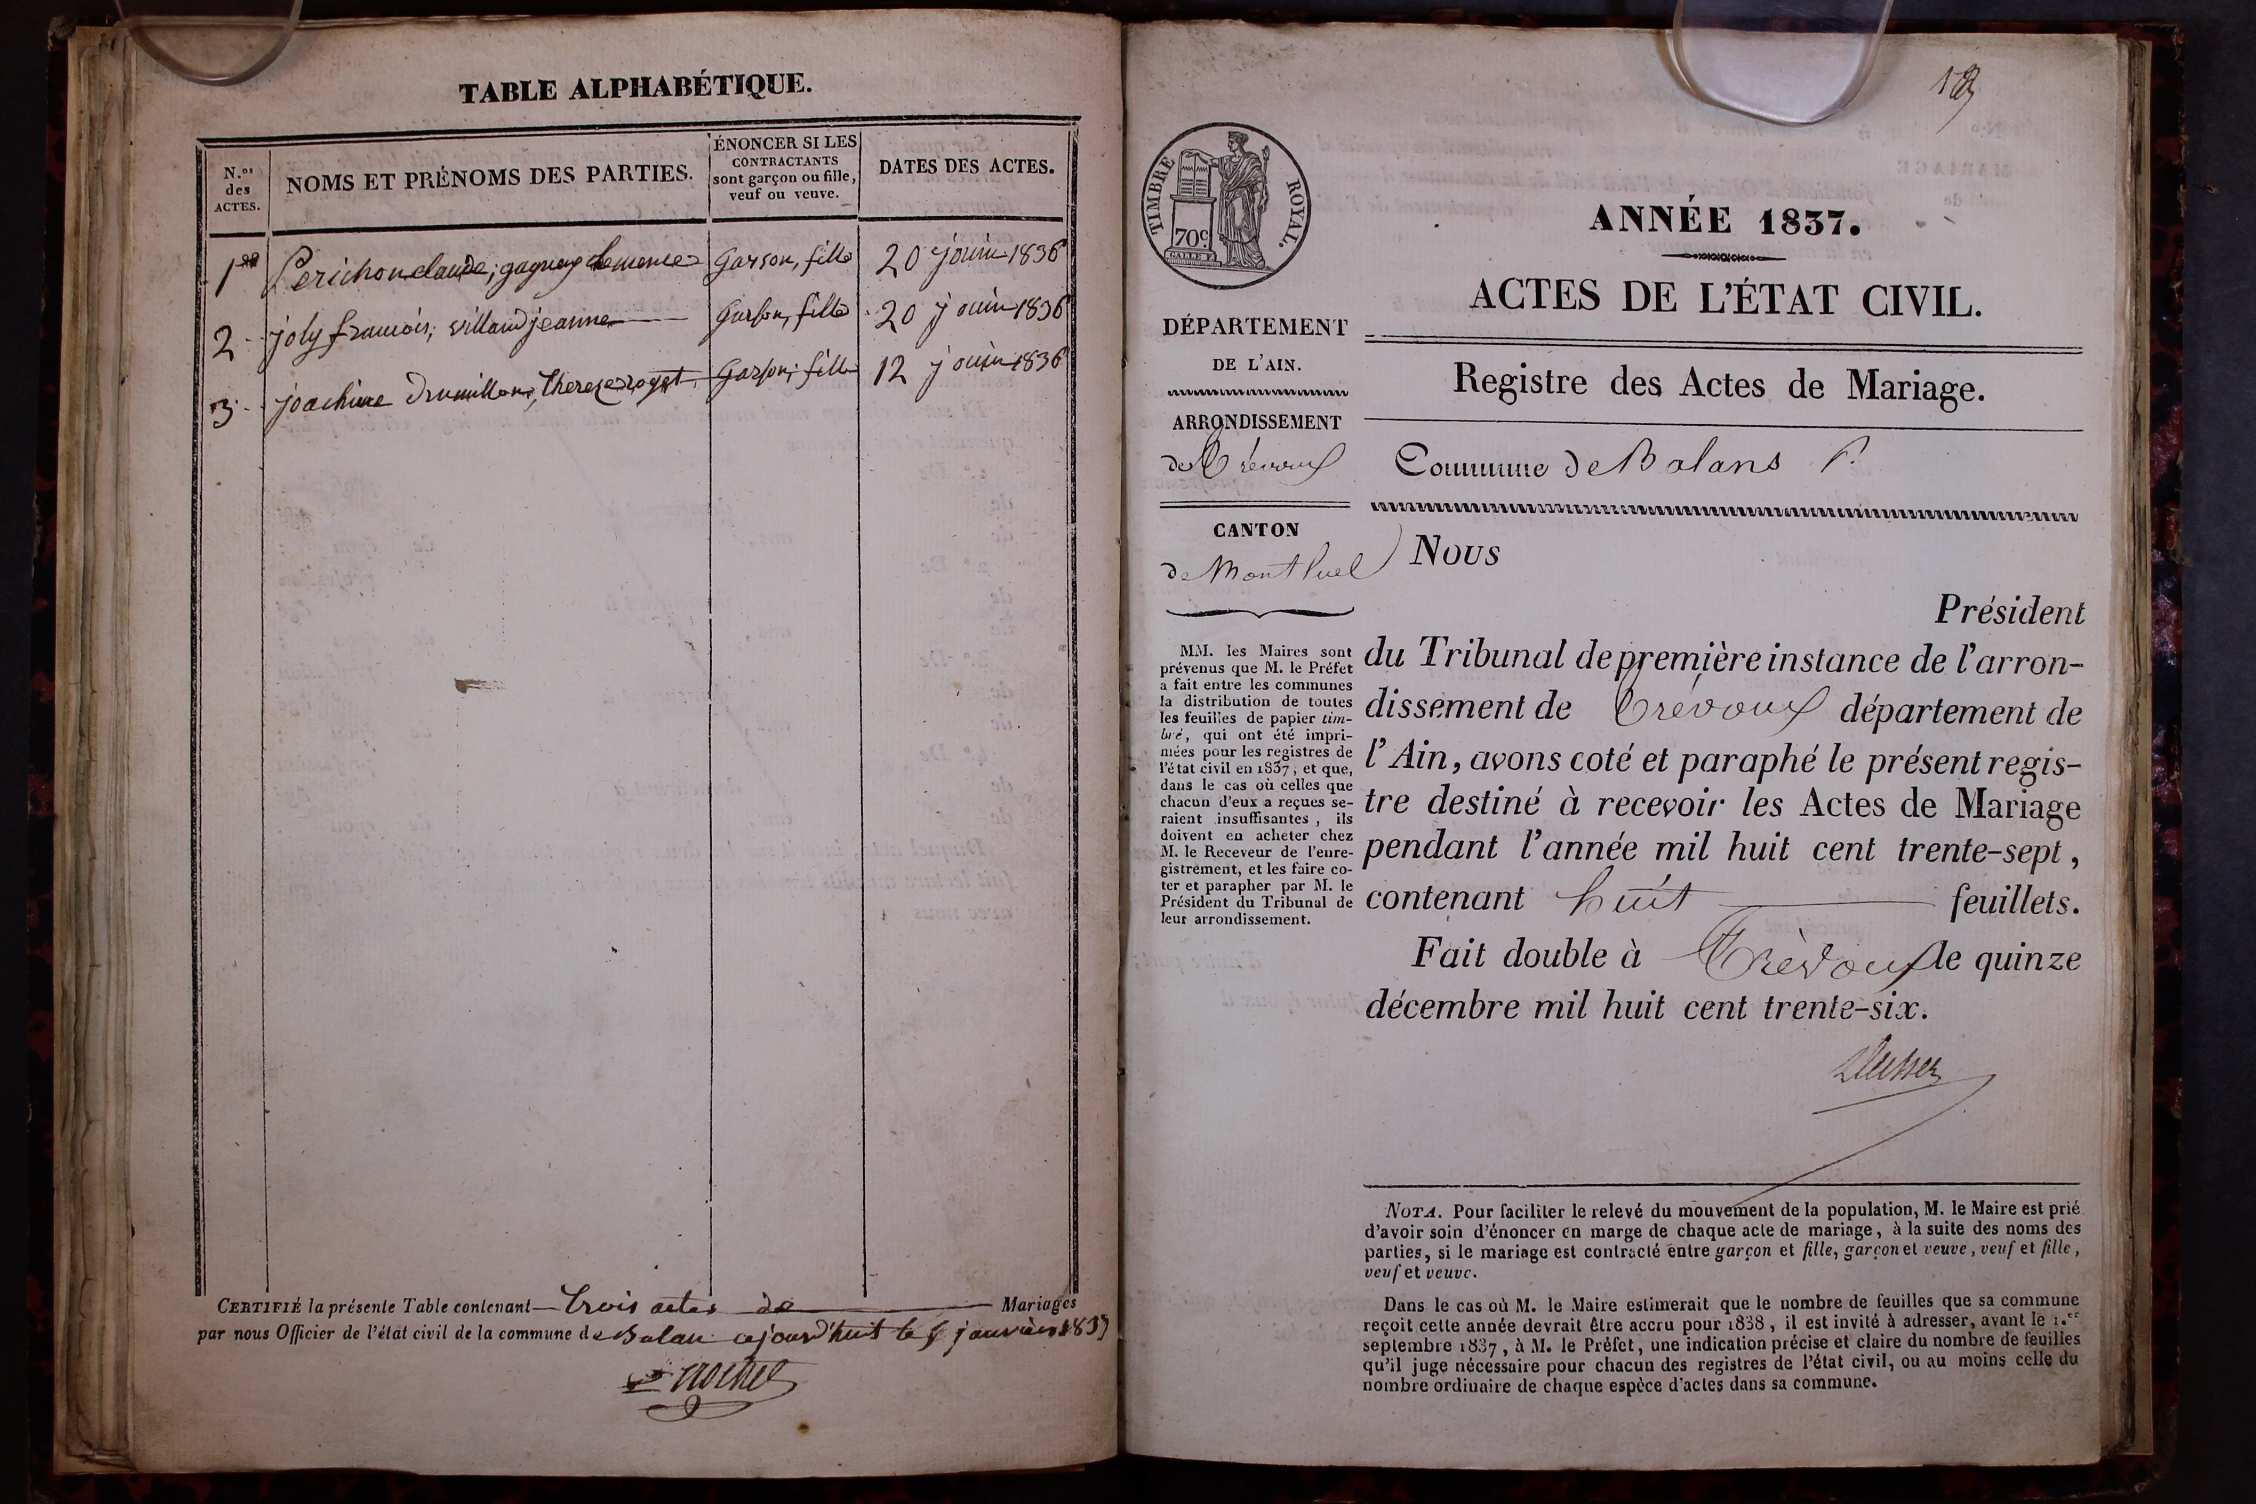 TABLE ALPHABÉTIQUE.
N.os des ACTES.
NOMS ET PRÉNOMS DES PARTIES.
ÉNONCER SI LES
CONTRACTANTS
sont garçon ou fille,
veuf ou veuve.
DATES DES ACTES.
1er Perichon claude, gagneux clemence Garson, fille 20 jouin 1836
2 joly francois, villand jeanne Garson, fille 20 jouin 1836
3 joachime Drumillon, Thereze royet Garson, fille 12 jouin 1836
CERTIFIÉ la présente Table contenant trois actes de Mariages
par nous Officier de l'état civil de la commune de Balan cejourd'huit le janvier 1837
TIMBRE ROYAL.
70c.
ANNÉE 1837.
ACTES DE L'ÉTAT CIVIL.
Registre des Actes de Mariage.
Commune de Balans
DÉPARTEMENT
DE L'AIN.
ARRONDISSEMENT
de Trévoux
CANTON
de Montluel
MM. les Maires sont
prévenus que M. le Préfet
a fait entre les communes
la distribution de toutes
les feuilles de papier tim-
bré, qui ont été impri-
mées pour les registres de
l'état civil en 1837, et que,
dans le cas où celles que
chacun d'eux a reçues se-
raient insuffisantes, ils
doivent en acheter chez
M. le Receveur de l'enre-
gistrement, et les faire co-
ter et parapher par M. le
Président du Tribunal de
leur arrondissement.
Nous
Président
du Tribunal de première instance de l'arron-
dissement de Trévoux département de
l'Ain, avons coté et paraphé le présent regis-
tre destiné à recevoir les Actes de Mariage
pendant l'année mil huit cent trente-sept,
contenant huit feuillets.
Fait double à Trévoux le quinze
décembre mil huit cent trente-six.
NOTA. Pour faciliter le relevé du mouvement de la population, M. le Maire est prié
d'avoir soin d'énoncer en marge de chaque acte de mariage, à la suite des noms des
parties, si le mariage est contracté entre garçon et fille, garçon et veuve, veuf et fille,
veuf et veuve.
Dans le cas où M. le Maire estimerait que le nombre de feuilles que sa commune
reçoit cette année devrait être accru pour 1838, il est invité à adresser, avant le 1.er
septembre 1837, à M. le Préfet, une indication précise et claire du nombre de feuilles
qu'il juge nécessaire pour chacun des registres de l'état civil, ou au moins celle du
nombre ordinaire de chaque espèce d'actes dans sa commune.